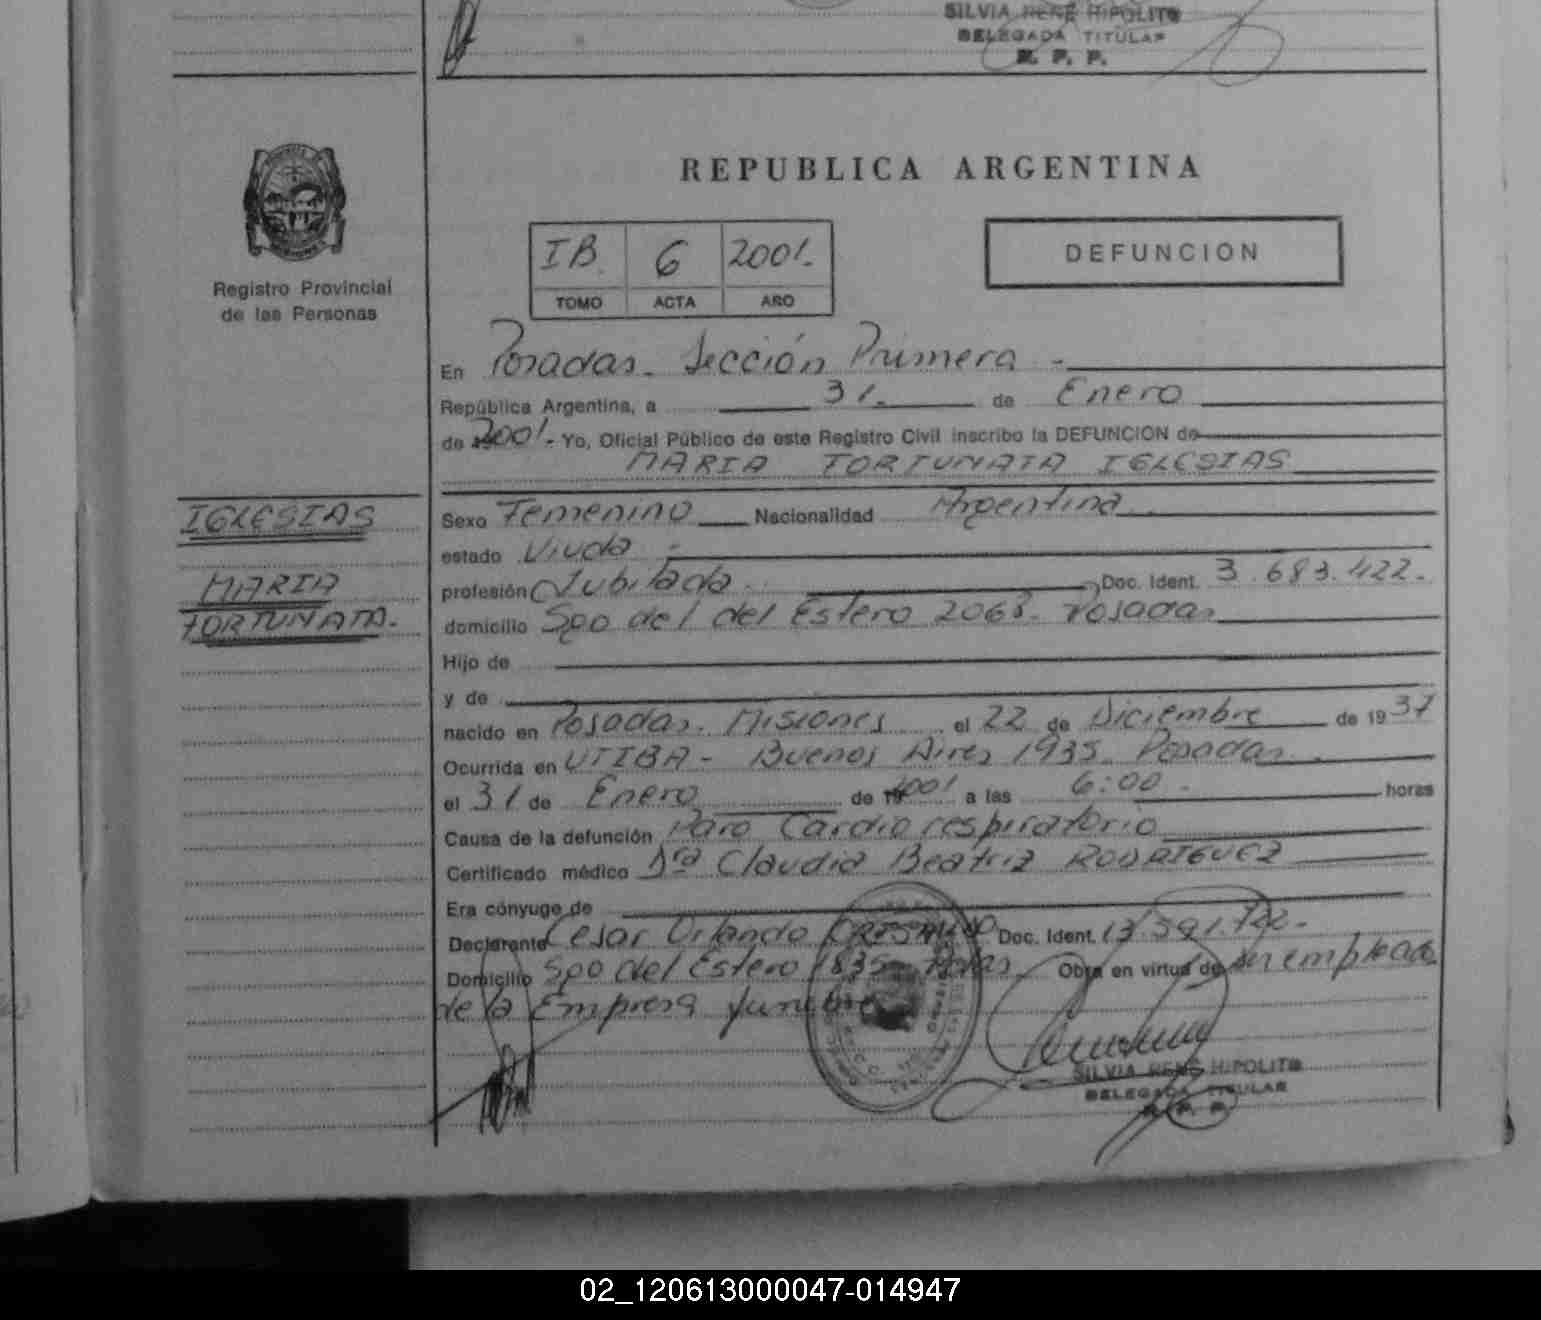 SILVIA RENE HIPOLITO
DELEGADA TITULAR
R. P. P.
REPUBLICA ARGENTINA
IB. 6 2001.
TOMO ACTA AÑO
DEFUNCION
Registro Provincial
de las Personas
En Posadas. Sección Primera -
República Argentina, a 31. de Enero
de 2001.- Yo, Oficial Público de este Registro Civil inscribo la DEFUNCION de
MARIA FORTUNATA IGLESIAS
IGLESIAS
MARIA
FORTUNATA.-
Sexo Femenino Nacionalidad Argentina
estado Viuda -
profesión Jubilada Doc. Ident. 3.683.422.
domicilio Sgo del del Estero 2068. Posadas
Hijo de
y de
nacido en Posadas. Misiones el 22 de Diciembre de 1937
Ocurrida en UTIBA - Buenos Aires 1935. Posadas.
el 31 de Enero de 2001 a las 6:00. horas
Causa de la defunción Paro Cardiorespiratorio
Certificado médico Dra Claudia Beatriz RODRIGUEZ
Era cónyuge de
Declarante Cesar Orlando Doc. Ident. 13.591.722.-
Domicilio Sgo del Estero 1835 Obra en virtud de ser empleado
de la Empresa funebre
SILVIA RENE HIPOLITO
DELEGADA TITULAR
R. P. P.
02_120613000047-014947